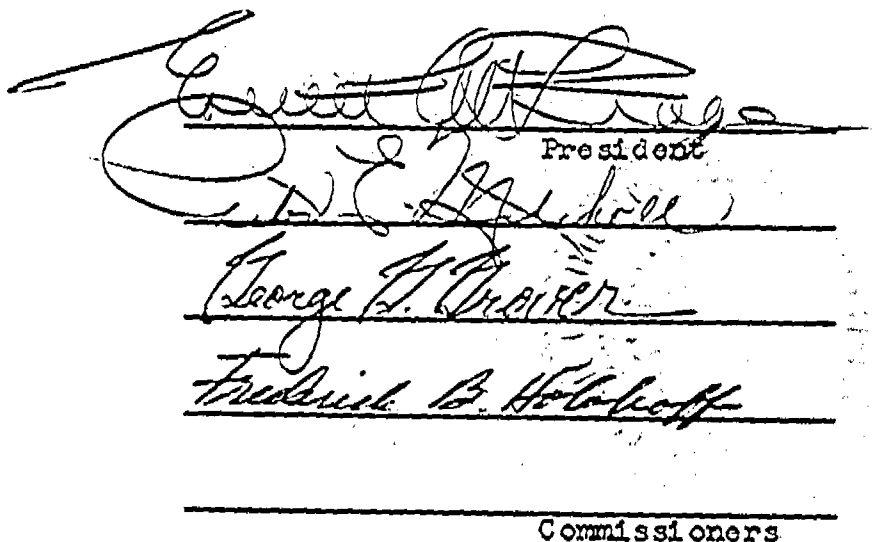 Everett C. McKeage
President
E. Mitchell
George G. Grover
Frederick B. Holoboff
Commissioners